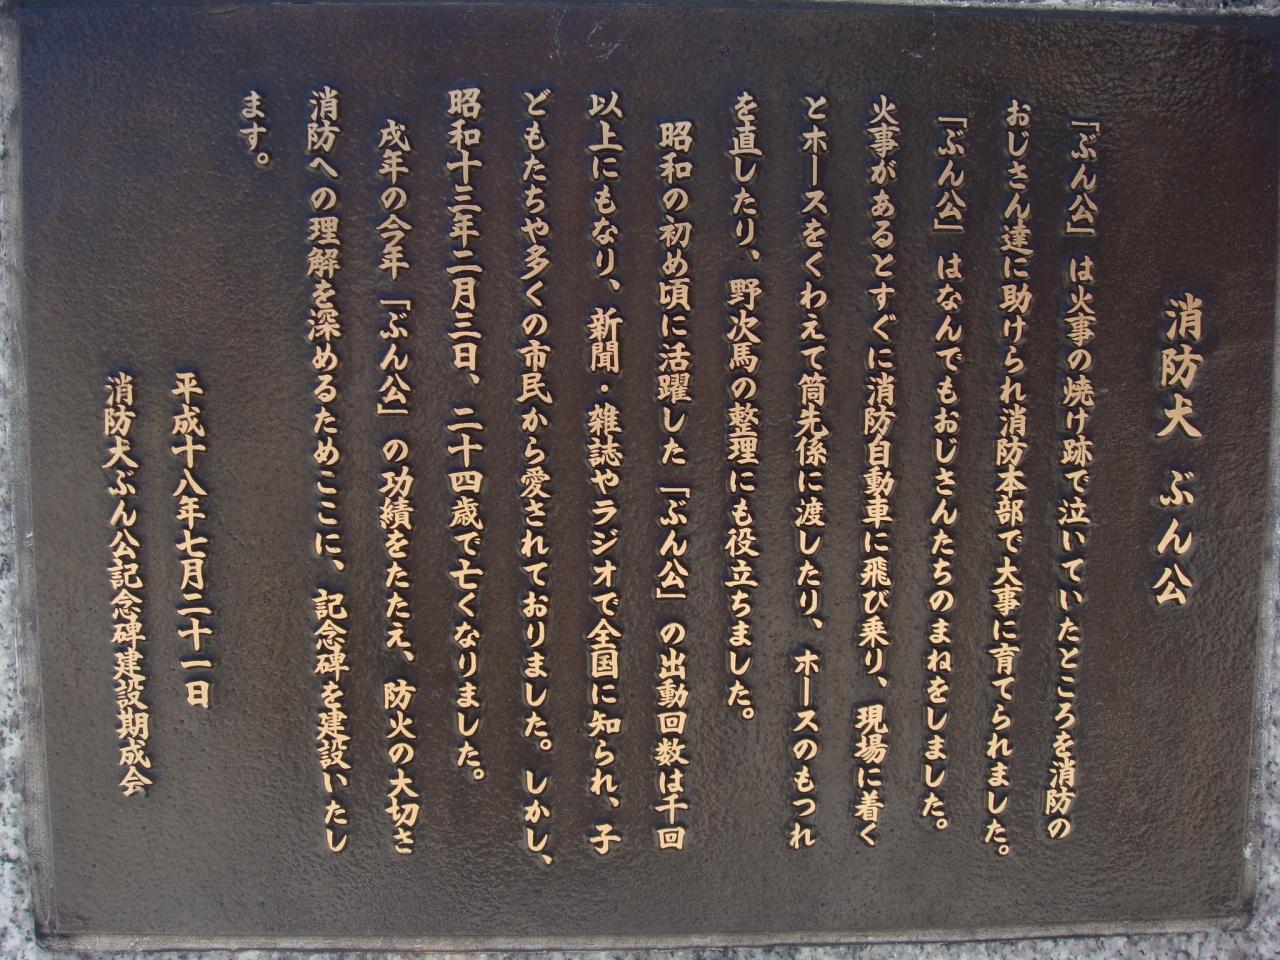 消防犬 ぶん公
「ぶん公」は火事の焼け跡で泣いていたところを消防の
おじさん達に助けられ消防本部で大事に育てられました。
「ぶん公」はなんでもおじさんたちのまねをしました。
火事があるとすぐに消防自動車に飛び乗り、現場に着く
とホースをくわえて筒先係に渡したり、ホースのもつれ
を直したり、野次馬の整理にも役立ちました。
昭和の初め頃に活躍した「ぶん公」の出動回数は千回
以上にもなり、新聞・雑誌やラジオで全国に知られ、子
どもたちや多くの市民から愛されておりました。しかし、
昭和十三年二月三日、二十四歳で亡くなりました。
戌年の今年「ぶん公」の功績をたたえ、防火の大切さ
消防への理解を深めるためここに、記念碑を建設いたし
ます。
平成十八年七月二十一日
消防犬ぶん公記念碑建設期成会